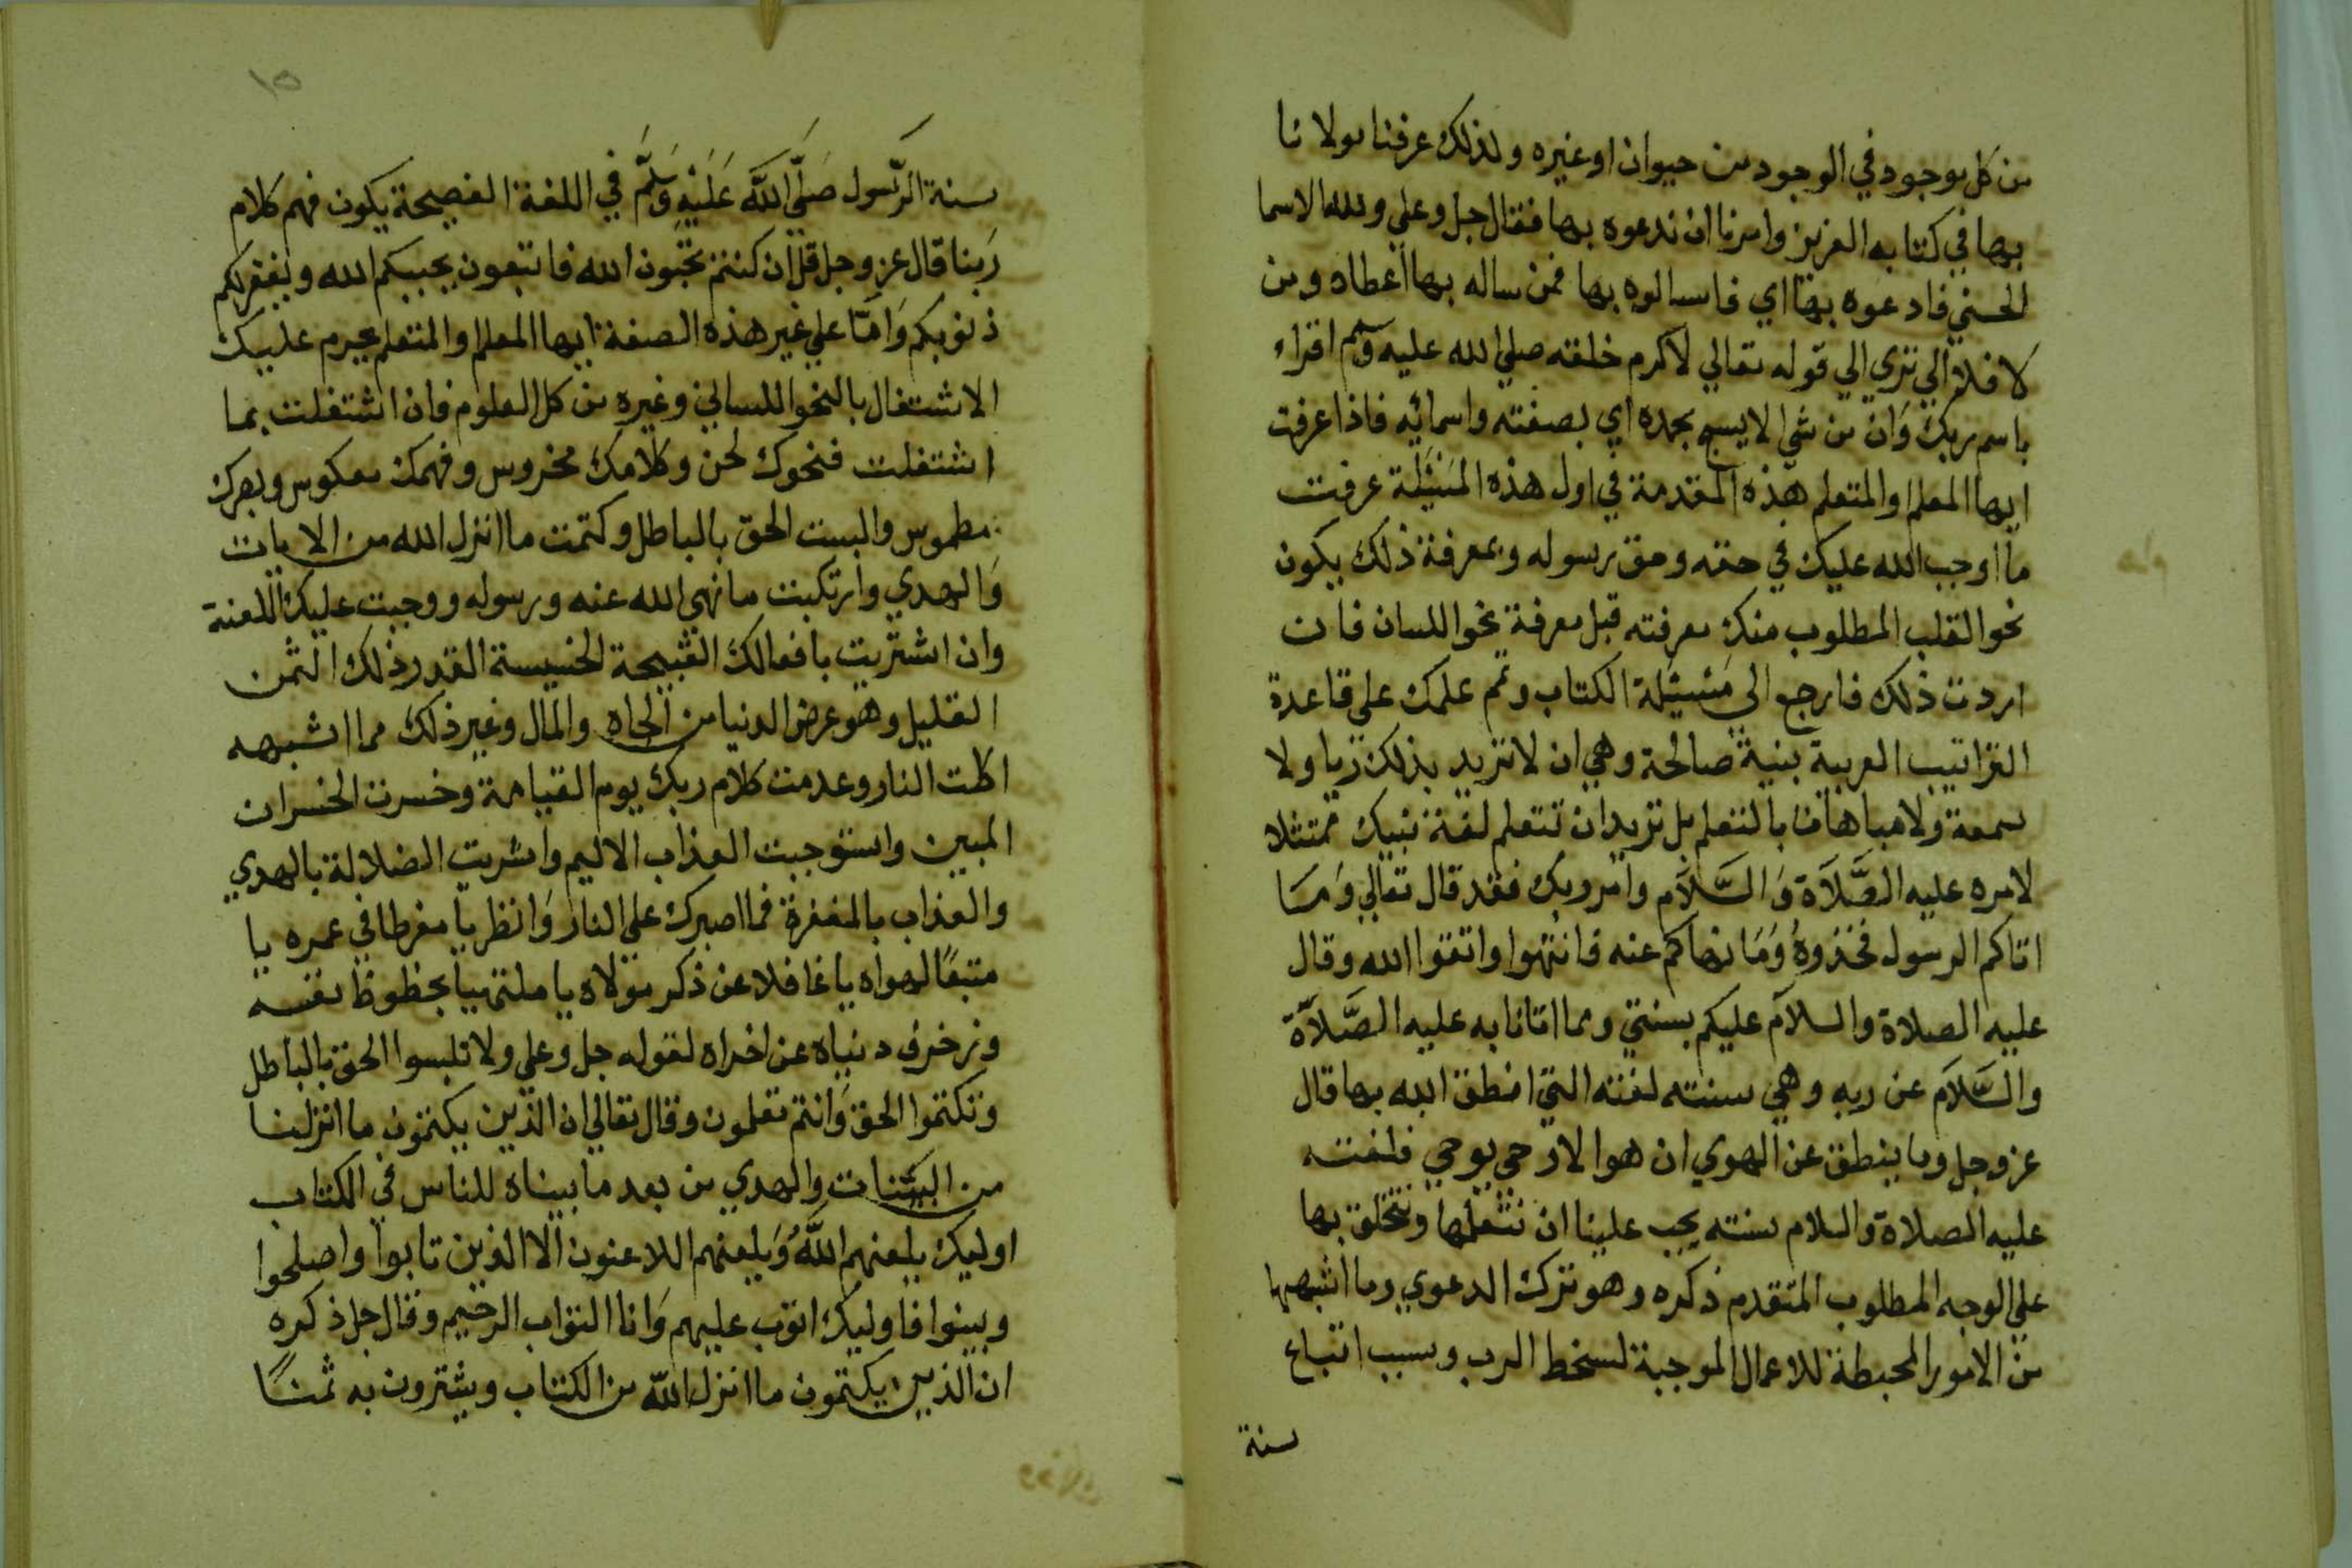 من كل موجود في الوجود من حيوان او غيره ولذلك عرفنا مولانا
بها في كتابه العزيز وامرنا ان ندعوه بها فقال جل وعلي ولله الاسما
الحسني فادعوه بها اي فاسالوه بها فمن ساله بها اعطاه ومن
لا فلا الي تري الي قوله تعالي لاكرم خلقه صلي الله عليه وسلم اقراء
باسم ربك وان من شي الا يسبح بحمده اي بصفته واسمائيه فاذا عرفت
ايها المعلم والمتعلم هذه المقدمة في اول هذه المسئلة عرفت
ما اوجب الله عليك في حقه وحق رسوله وبمعرفة ذلك يكون
نحو القلب المطلوب منك معرفته قبل معرفة نحو اللسان فان
اردت ذلك فارجع الي مسئيلة الكتاب وتمم علمك علي قاعدة
التراتيب العربية بنية صالحة وهي ان لا تريد بذلك ريا ولا
سمعة ولا مباهات بالتعلم بل تريد ان تتعلم لغة نبيك ممتثلا
لامره عليه الصَّلاَة وَالسَّلاَم وامر ربك فقد قال تعالي وَمَا
اتاكم الرسول فخذوهُ وَمَا نهاكم عنه فانتهوا واتقوا الله وقال
عليه الصلاة والسلام عليكم بسنتي ومما اتانا به عليه الصَّلاَة
والسَّلاَم عن ربه وهي سنته لغته التي انطق الله بها قال
عز وجل وما ينطق عن الهوي ان هو الا وحي يوحي فلغته
عليه الصلاة والسلام سنته يجب علينا ان نتعلمها ونتخلق بها
علي الوجه المطلوب المتقدم ذكره وهو ترك الدعوي وما اشبهها
من الامور المحبطة للاعمال الموجبة لسخط الرب وسبب اتباع
سنة
١٥
سنة الرَّسول صَلَّي اللَّه عَلَيْهِ وَسَلَّم في اللغة الفصيحة يكون فهم كلام
ربنا قال عز وجل قل ان كنتم تحبون الله فاتبعون يحببكم الله ويغفر لكم
ذنوبكم وَامَّا علي غير هذه الصفة ايها المعلم والمتعلم يحرم عليك
الاشتغال بالنحو اللساني وغيره من كل العلوم فان اشتغلت بما
اشتغلت فنحوك لحن وكلامك مخروس وفهمك معكوس وبصرك
مطموس والبست الحق بالباطل وكتمت ما انزل الله من الايات
وَالهدي وارتكبت ما نهي الله عنه ورسوله ووجبت عليك اللعنة
وان اشتريت بافعالك القبيحة الخسيسة القدر ذلك الثمن
القليل وهو عرض الدنيا من الجاه والمال وغير ذلك مما اشبهه
اكلت النار وعدمت كلام ربك يوم القيامة وخسرت الخسران
المبين واستوجبت العذاب الاليم واشريت الضلالة بالهدي
والعذاب بالمغفرة فما اصبرك علي النار وَانظر يا مفرطا في عمره يا
متبعًا لهواه يا غافلا عن ذكر مولاه يا ملتهيا بحظوظ نفسه
وزخرف دنياه عن اخراه لقوله جل وعلي ولا تلبسوا الحق بالباطل
وتكتموا الحق وَانتم تعلمون وقال تعالي ان الذين يكتمون ما انزلنا
من البيّنات والهدي من بعد ما بيناه للناس في الكتاب
اوليك يلعنهم اللَّهُ وَيلعنهم اللاعنون الا الذين تابوا واصلحوا
وبينوا فاوليك اتوب عليهم وَانا التواب الرحيم وقال جل ذكره
ان الذين يكتمون ما انزل الله من الكتاب ويشترون به ثمنًا